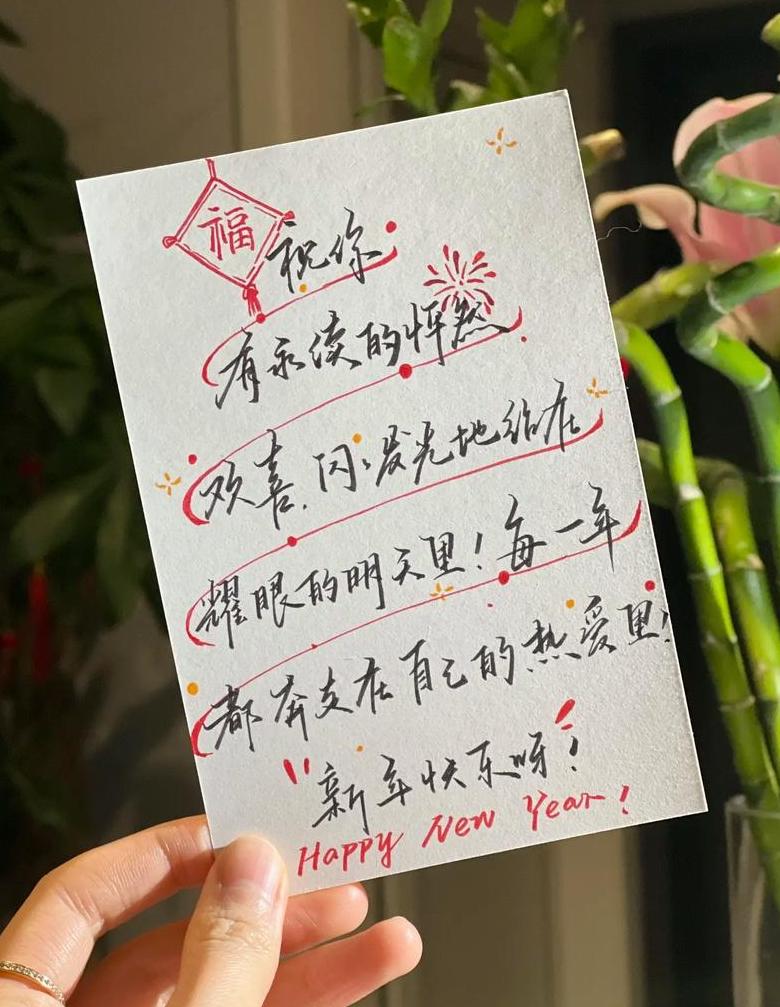 福
祝你
有永续的怦然
欢喜,闪闪发光地站在
耀眼的明天里!每一年
都奔走在自己的热爱里!
新年快乐呀!
Happy New Year!